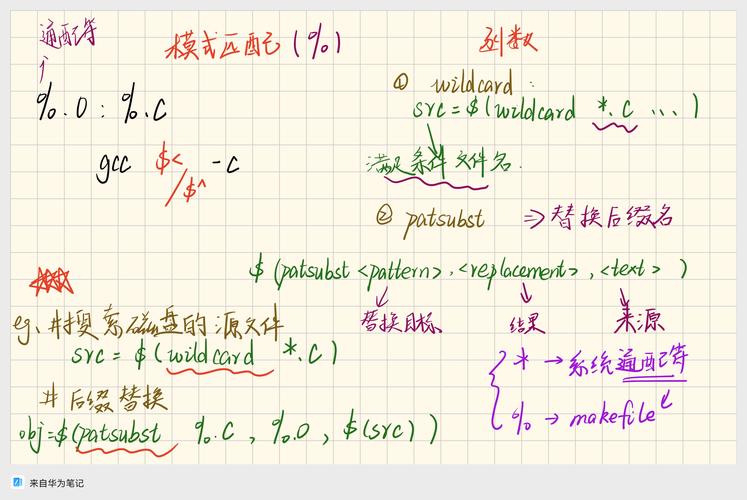 通配符
模式匹配 (%)
%.o : %.c
gcc $< /$^ -c
函数
① wildcard :
src = $(wildcard *.c ...)
满足条件文件名.
② patsubst => 替换后缀名
$(patsubst <pattern>,<replacement>,<text>)
替换目标 结果 来源
eg. #搜索磁盘的源文件
src = $(wildcard *.c)
# 后缀替换
obj=$(patsubst %.c, %.o, $(src))
* → 系统通配符
% → makefile
来自华为笔记